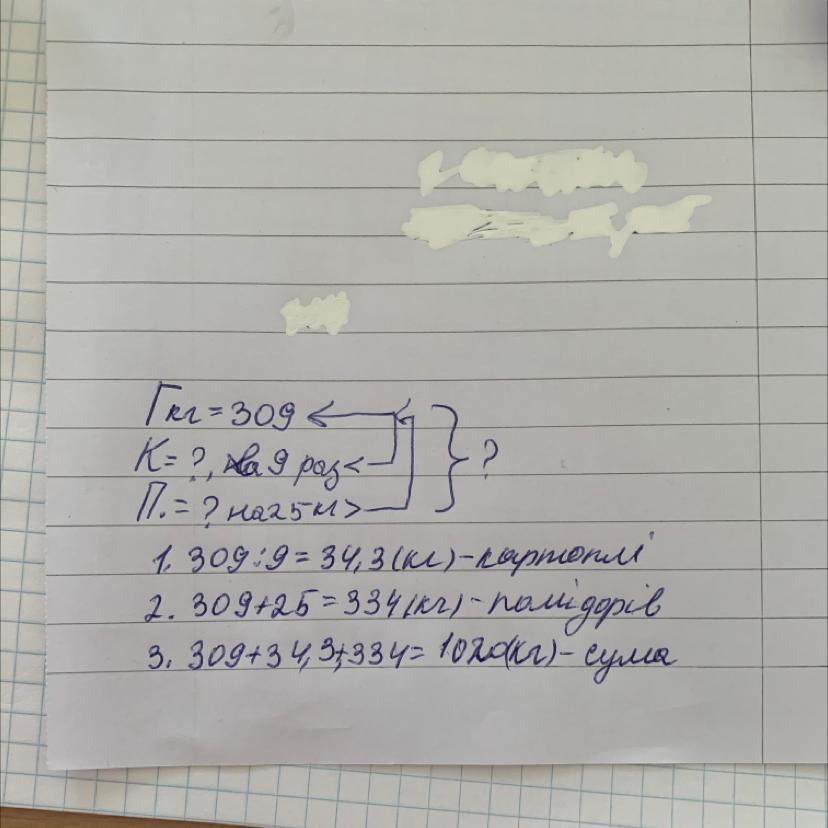 Гкг = 309
К = ?, на 9 раз <
П. = ? на 25 кг >
?
1. 309 : 9 = 34,3 (кг) - картоплі
2. 309 + 25 = 334 (кг) - помідорів
3. 309 + 34,3 + 334 = 1020 (кг) - сума